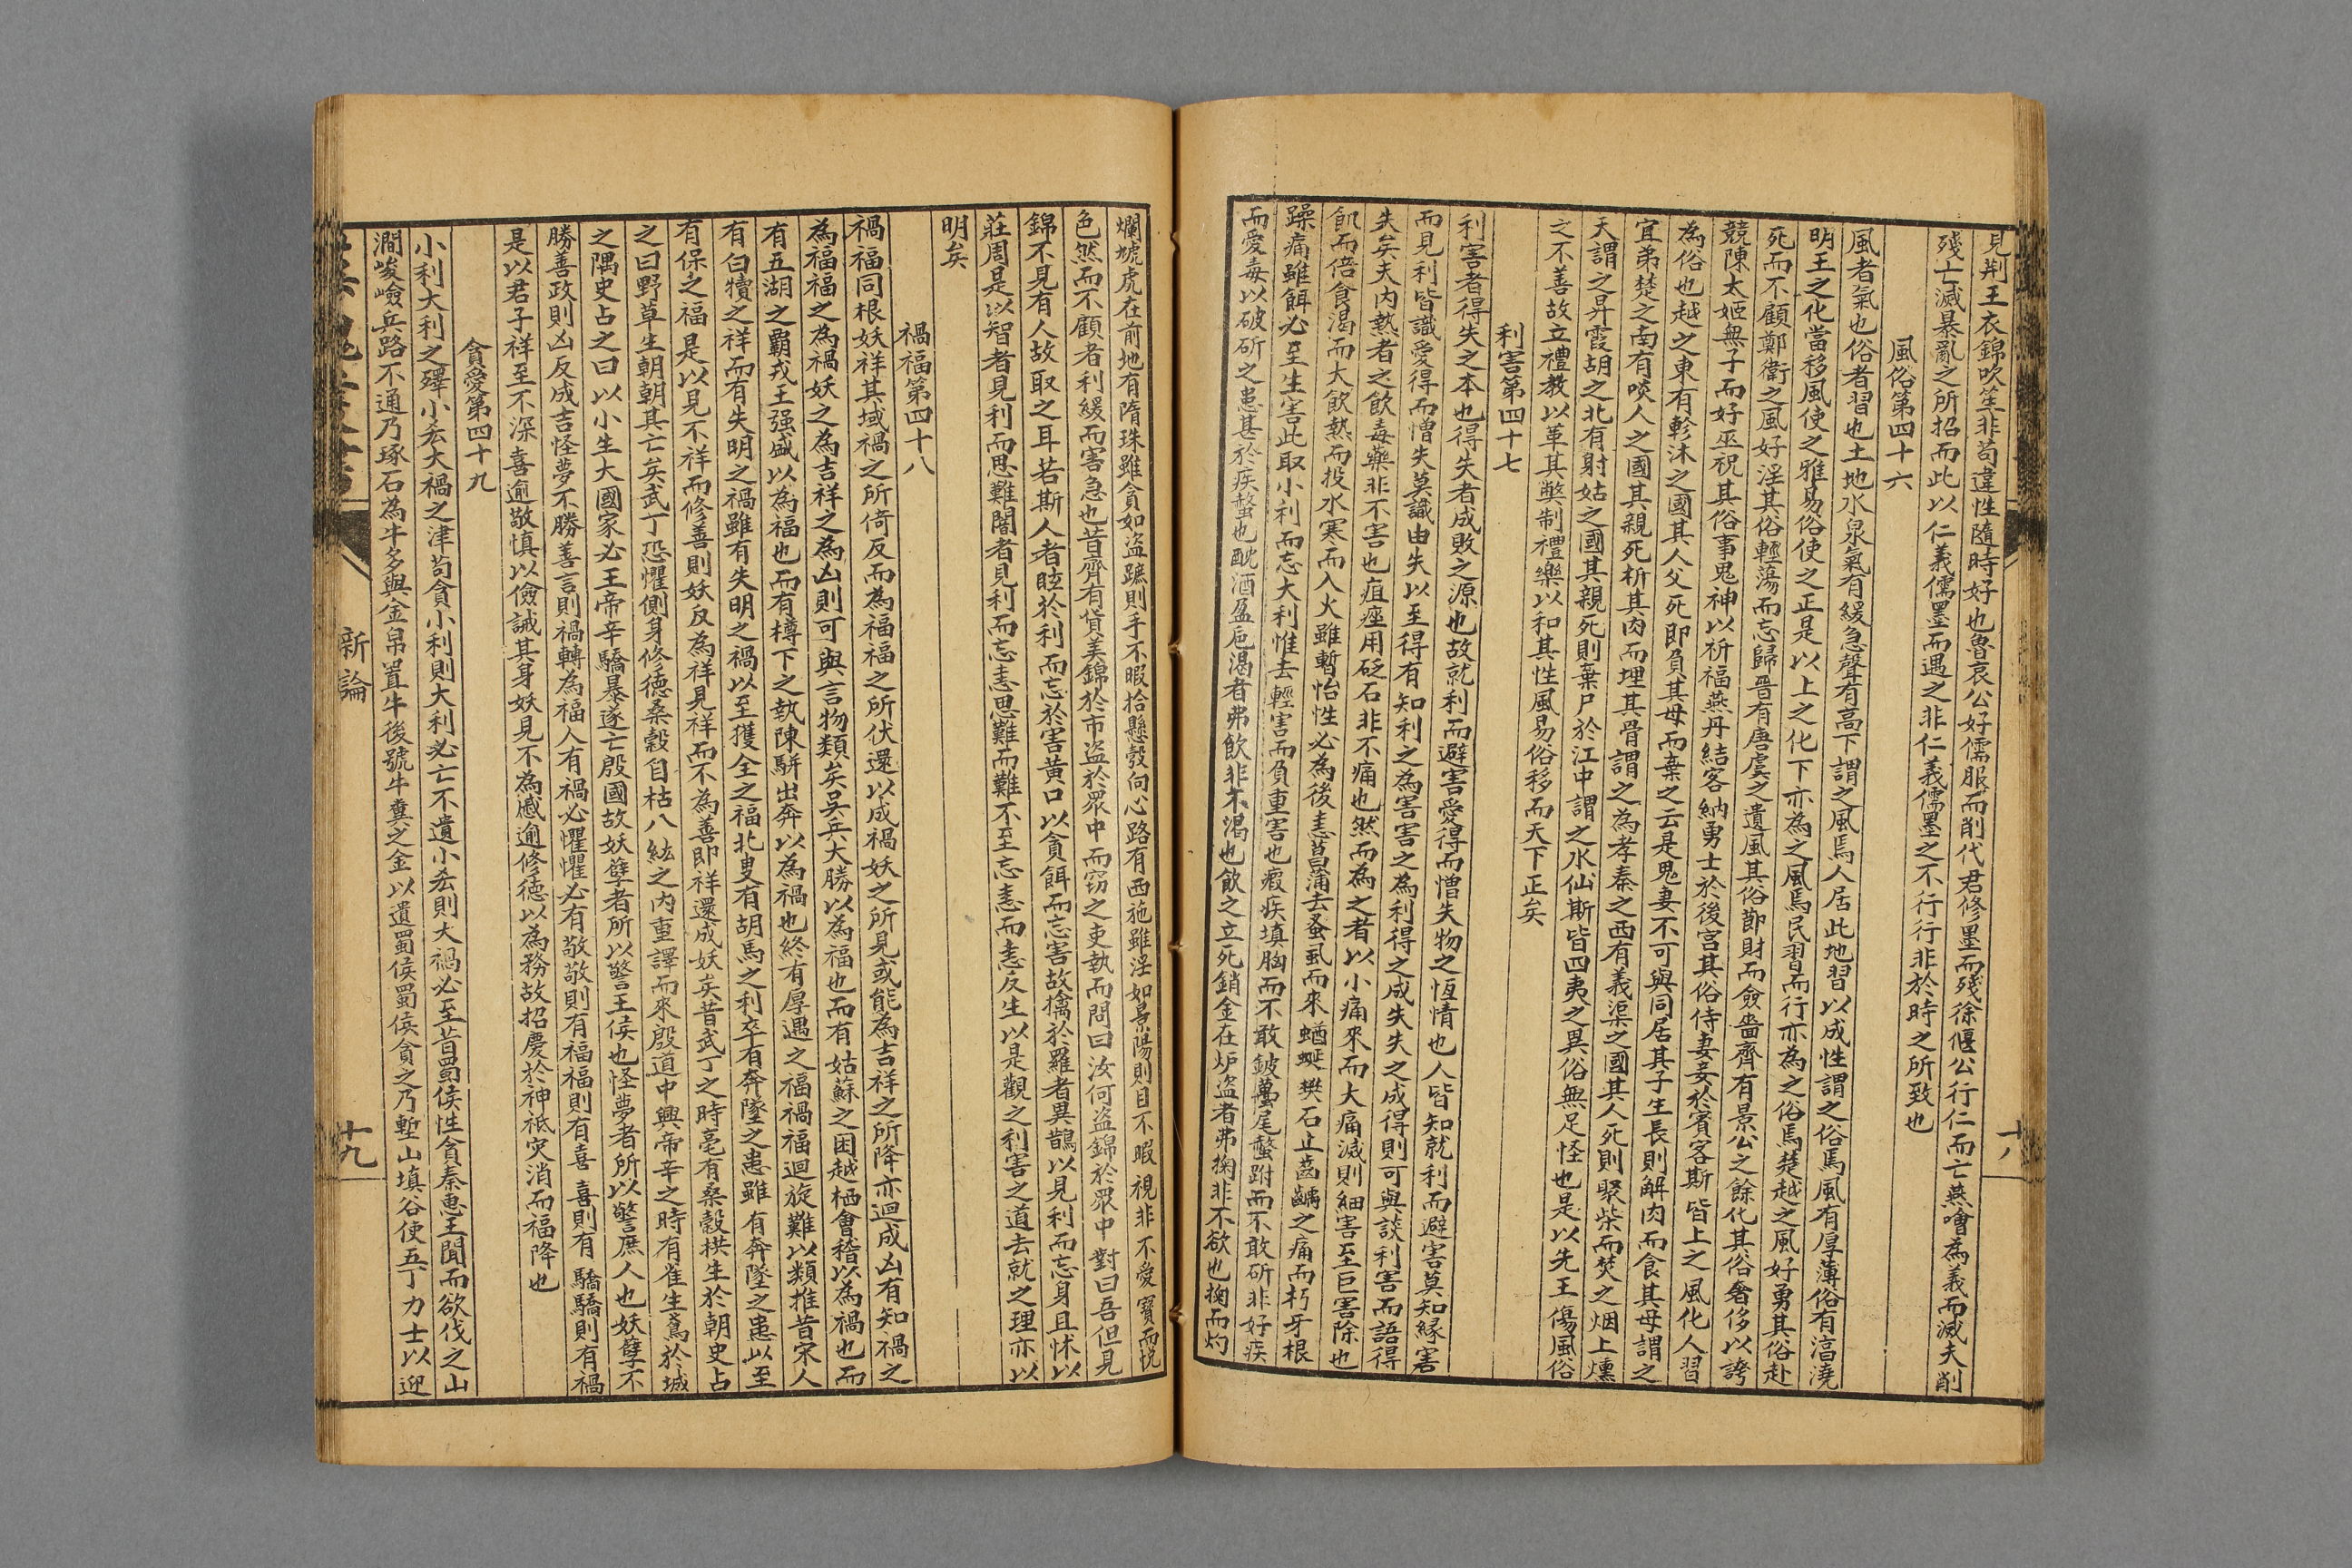 見荆王衣錦吹笙非苟違性隨時好也魯哀公好儒服而削代君修墨而殘徐偃公行仁而亡燕噲為義而滅夫削
殘亡滅暴亂之所招而此以仁義儒墨而遇之非仁義儒墨之不行行非於時之所致也
風俗第四十六
風者氣也俗者習也土地水泉氣有緩急聲有高下謂之風焉人居此地習以成性謂之俗焉風有厚薄俗有淳澆
明王之化當移風使之雅易俗使之正是以上之化下亦為之風焉民習而行亦為之俗焉楚越之風好勇其俗赴
死而不顧鄭衛之風好淫其俗輕蕩而忘歸晋有唐虞之遺風其俗節財而儉嗇齊有景公之餘化其俗奢侈以誇
競陳大姬無子而好巫祝其俗事鬼神以祈福燕丹結客納勇士於後宮其俗侍妻妾於賓客斯皆上之風化人習
為俗也越之東有軫沐之國其人父死即負其母而棄之云是鬼妻不可與同居其子生長則解肉而食其母謂之
宜弟楚之南有啖人之國其親死析其肉而埋其骨謂之為孝秦之西有義渠之國其人死則聚柴而焚之烟上燻
天謂之昇霞胡之北有射姑之國其親死則棄尸於江中謂之水仙斯皆四夷之異俗無足怪也是以先王傷風俗
之不善故立禮教以革其獘制禮樂以和其性風易俗移而天下正矣
利害第四十七
利害者得失之本也得失者成敗之源也故就利而避害愛得而憎失物之恆情也人皆知就利而避害莫知緣害
而見利皆識愛得而憎失莫識由失以至得有知利之為害害之為利得之成失失之成得則可與談利害而語得
失矣夫内熱者之飲毒藥非不害也疽痤用砭石非不痛也然而為之者以小痛來而大痛滅則細害至巨害除也
飢而倍食渴而大飲熱而投水寒而入火雖暫怡性必為後恚菖蒲去蚤虱而來蝤蜒樊石止齒齲之痛而朽牙根
躁痛雖餌必至生害此取小利而忘大利惟去輕害而負重害也瘕疾填胸而不敢鈹蠆尾螫跗而不敢斫非好疾
而愛毒以破斫之患甚於疾螫也酖酒盈巵渴者弗飲非不渴也飲之立死銷金在炉盗者弗掬非不欲也掬而灼
爛虓虎在前地有隋珠雖貪如盗蹠則手不暇拾懸彀向心路有西施雖淫如景陽則目不暇視非不愛寶而悅
色然而不顧者利緩而害急也昔齊有貸美錦於市盗於眾中而窃之吏執而問曰汝何盗錦於眾中對曰吾但見
錦不見有人故取之耳若斯人者眩於利而忘於害黄口以貪餌而忘害故擒於羅者異鵲以見利而忘身且怵以
莊周是以智者見利而思難闇者見利而忘恚思難而難不至忘恚而恚反生以是觀之利害之道去就之理亦以
明矣
禍福第四十八
禍福同根妖祥其域禍之所倚反而為福福之所伏還以成禍妖之所見或能為吉祥之所降亦迴成凶有知禍之
為福福之為禍妖之為吉祥之為凶則可與言物類矣吳兵大勝以為福也而有姑蘇之困越栖會稽以為禍也而
有五湖之覇戎王强盛以為福也而有樽下之執陳駢出奔以為禍也終有厚遇之福禍福迴旋難以類推昔宋人
有白犢之祥而有失明之禍雖有失明之禍以至獲全之福北叟有胡馬之利卒有奔墜之患雖有奔墜之患以至
有保之福是以見不祥而修善則妖反為祥見祥而不為善即祥還成妖矣昔武丁之時亳有桑榖拱生於朝史占
之曰野草生朝朝其亡矣武丁恐懼側身修德桑榖自枯八紘之内重譯而來殷道中興帝辛之時有雀生鳶於城
之隅史占之曰以小生大國家必王帝辛驕暴遂亡殷國故妖孽者所以警王侯也怪夢者所以警庶人也妖孽不
勝善政則凶反成吉怪夢不勝善言則禍轉為福人有禍必懼懼必有敬敬則有福福則有喜喜則有驕驕則有禍
是以君子祥至不深喜逾敬慎以儉誡其身妖見不為慼逾修德以為務故招慶於神祇灾消而福降也
貪愛第四十九
小利大利之殬小𠫤大禍之津苟貪小利則大利必亡不遺小𠫤則大禍必至昔蜀侯性貪秦惠王聞而欲伐之山
澗峻嶮兵路不通乃琢石為牛多與金帛置牛後號牛糞之金以遺蜀侯蜀侯貪之乃塹山填谷使五丁力士以迎
新論
十九
十八